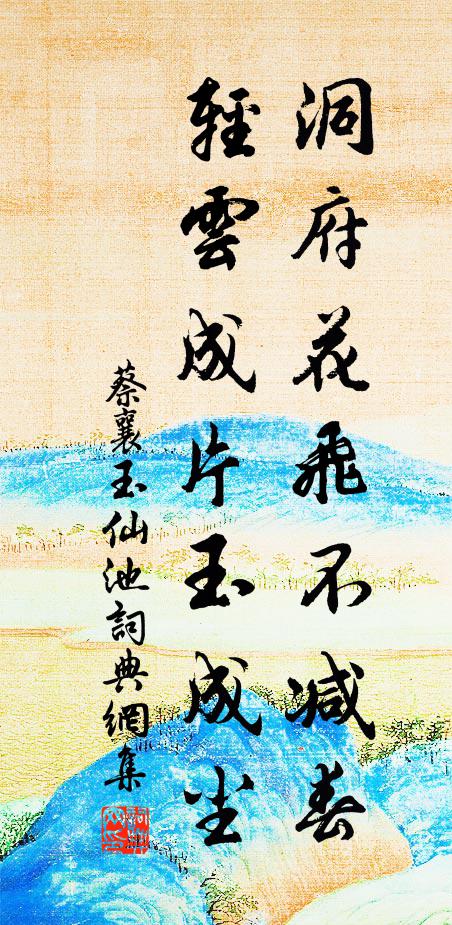 洞府花飛不減春
輕雲成片玉成尘
蔡襄玉仙池詞典網集